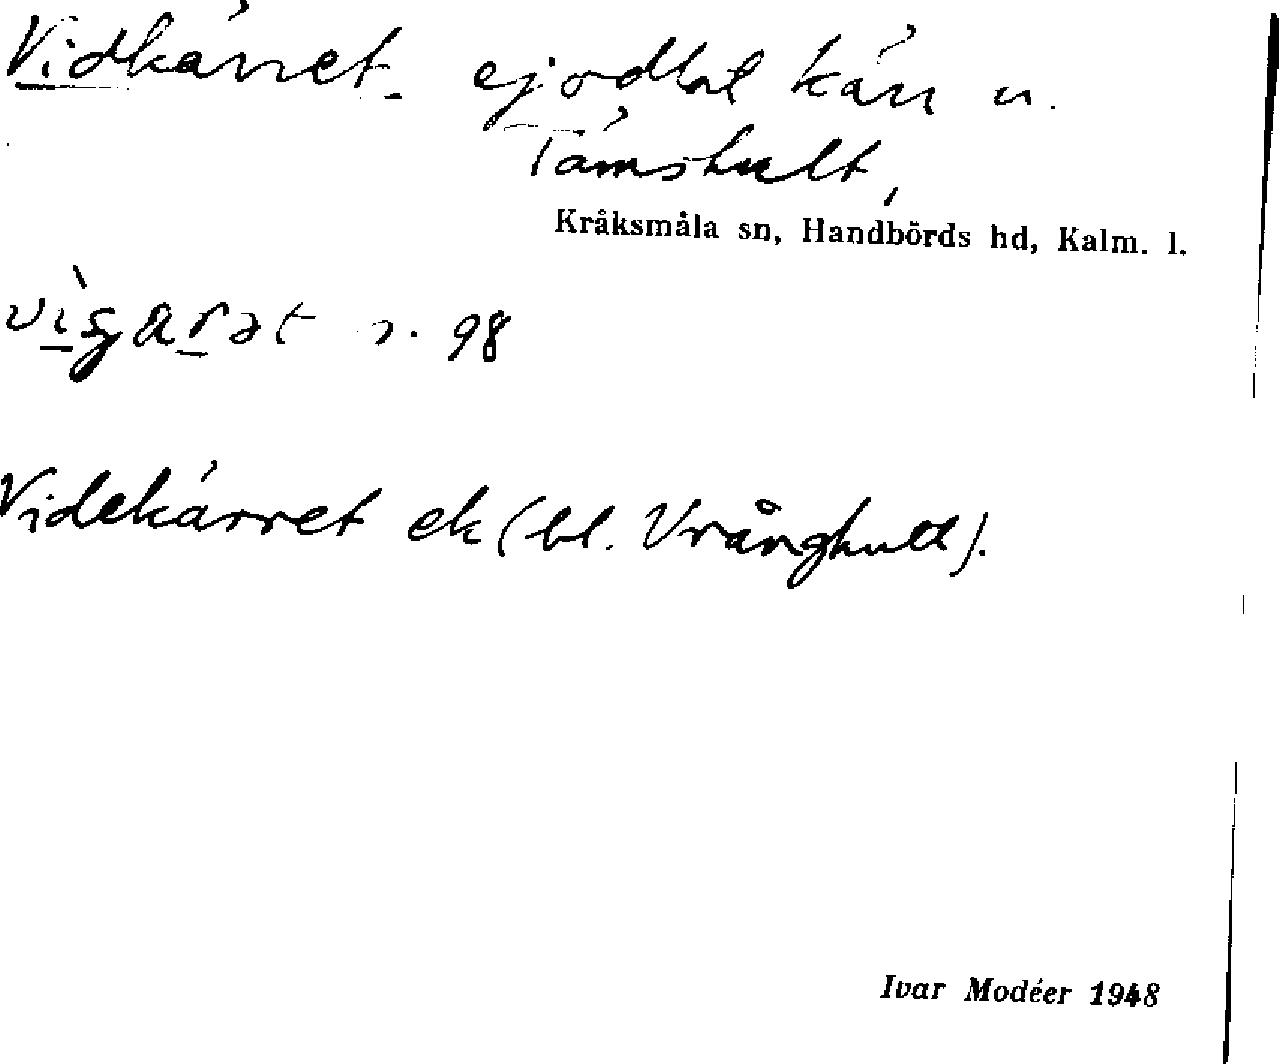 Vidkärret. ejodlat kärr u.
Tämshult,
Kråksmåla sn, Handbörds hd, Kalm. l.
98
Videkärret ek (bl. Vrånghult).
Ivar Modéer 1948